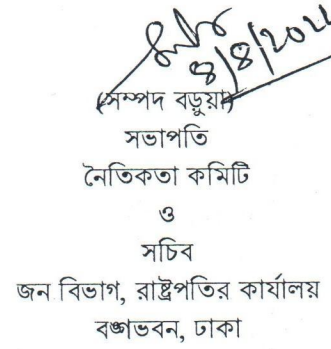 8/8/202
(সম্পদ বড়ুয়া)
সভাপতি
নৈতিকতা কমিটি
ও
সচিব
জন বিভাগ, রাষ্ট্রপতির কার্যালয়
বঙ্গভবন, ঢাকা